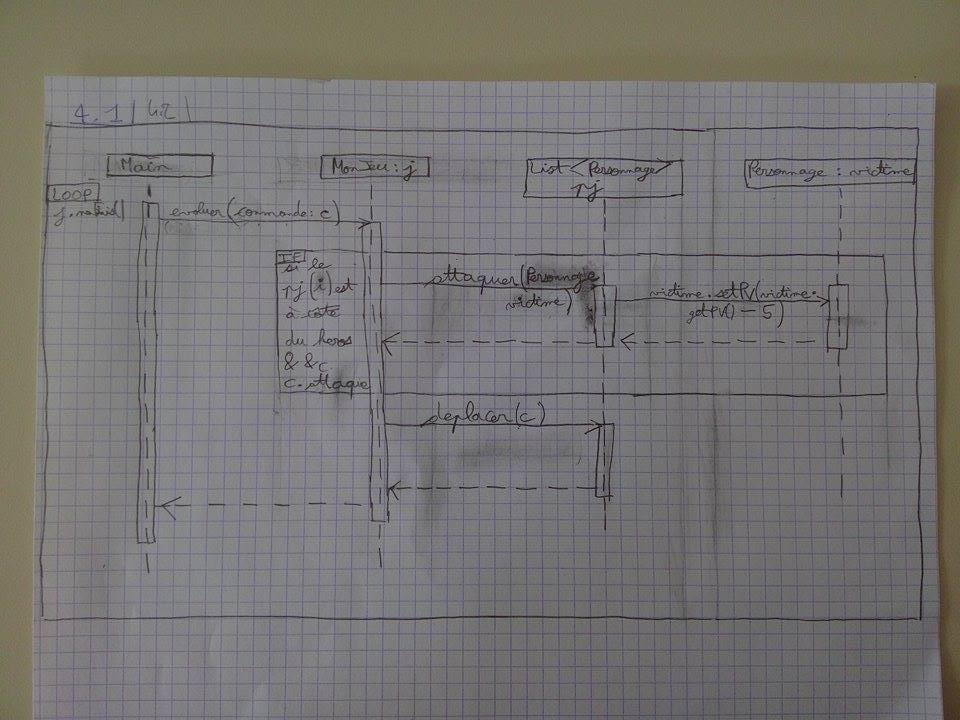 4.1 | 4.2 |
Main
MonJeu : j
List <Personnage>
pj
Personnage : victime
LOOP
evoluer (commande : c)
IF
si le
pj (i) est
à coté
du heros
& & c.
c. attaque
attaquer (Personnage
victime)
victime . setPV (victime .
getPV() - 5)
deplacer (c)